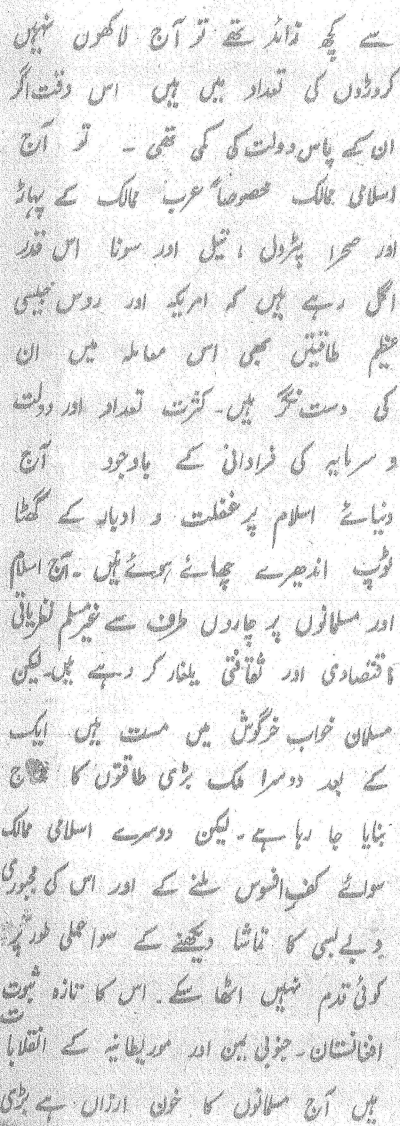 سے کچھ زائد تھے تو آج لاکھوں نہیں
کروڑوں کی تعداد میں ہیں اس وقت اگر
ان کے پاس دولت کی کمی تھی ۔ تو آج
اسلامی ممالک خصوصاً عرب ممالک کے پہاڑ
اور صحرا پٹرول ، تیل اور سونا اس قدر
اگل رہے ہیں کہ امریکہ اور روس جیسی
عظیم طاقتیں بھی اس معاملہ میں ان
کی دست نگر ہیں۔ کثرت تعداد اور دولت
و سرمایہ کی فراوانی کے باوجود آج
دنیائے اسلام پر غفلت و ادبار کے گھٹا
ٹوپ اندھیرے چھائے ہوئے ہیں ۔ آج اسلام
اور مسلمانوں پر چاروں طرف سے غیر مسلم نظریاتی
اقتصادی اور ثقافتی یلغار کر رہے ہیں۔ لیکن
مسلمان خواب خرگوش میں مست ہیں ایک
کے بعد دوسرا ملک بڑی طاقتوں کا
بنایا جا رہا ہے۔ لیکن دوسرے اسلامی ممالک
سوائے کفِ افسوس ملنے کے اور اس کی مجبوری
و بے بسی کا تماشا دیکھنے کے سوا عملی طور پر
کوئی قدم نہیں اٹھا سکے۔ اس کا تازہ ثبوت
افغانستان۔ جنوبی یمن اور موریطانیہ کے انقلابات
ہیں آج مسلمانوں کا خون ارزاں ہے بڑی